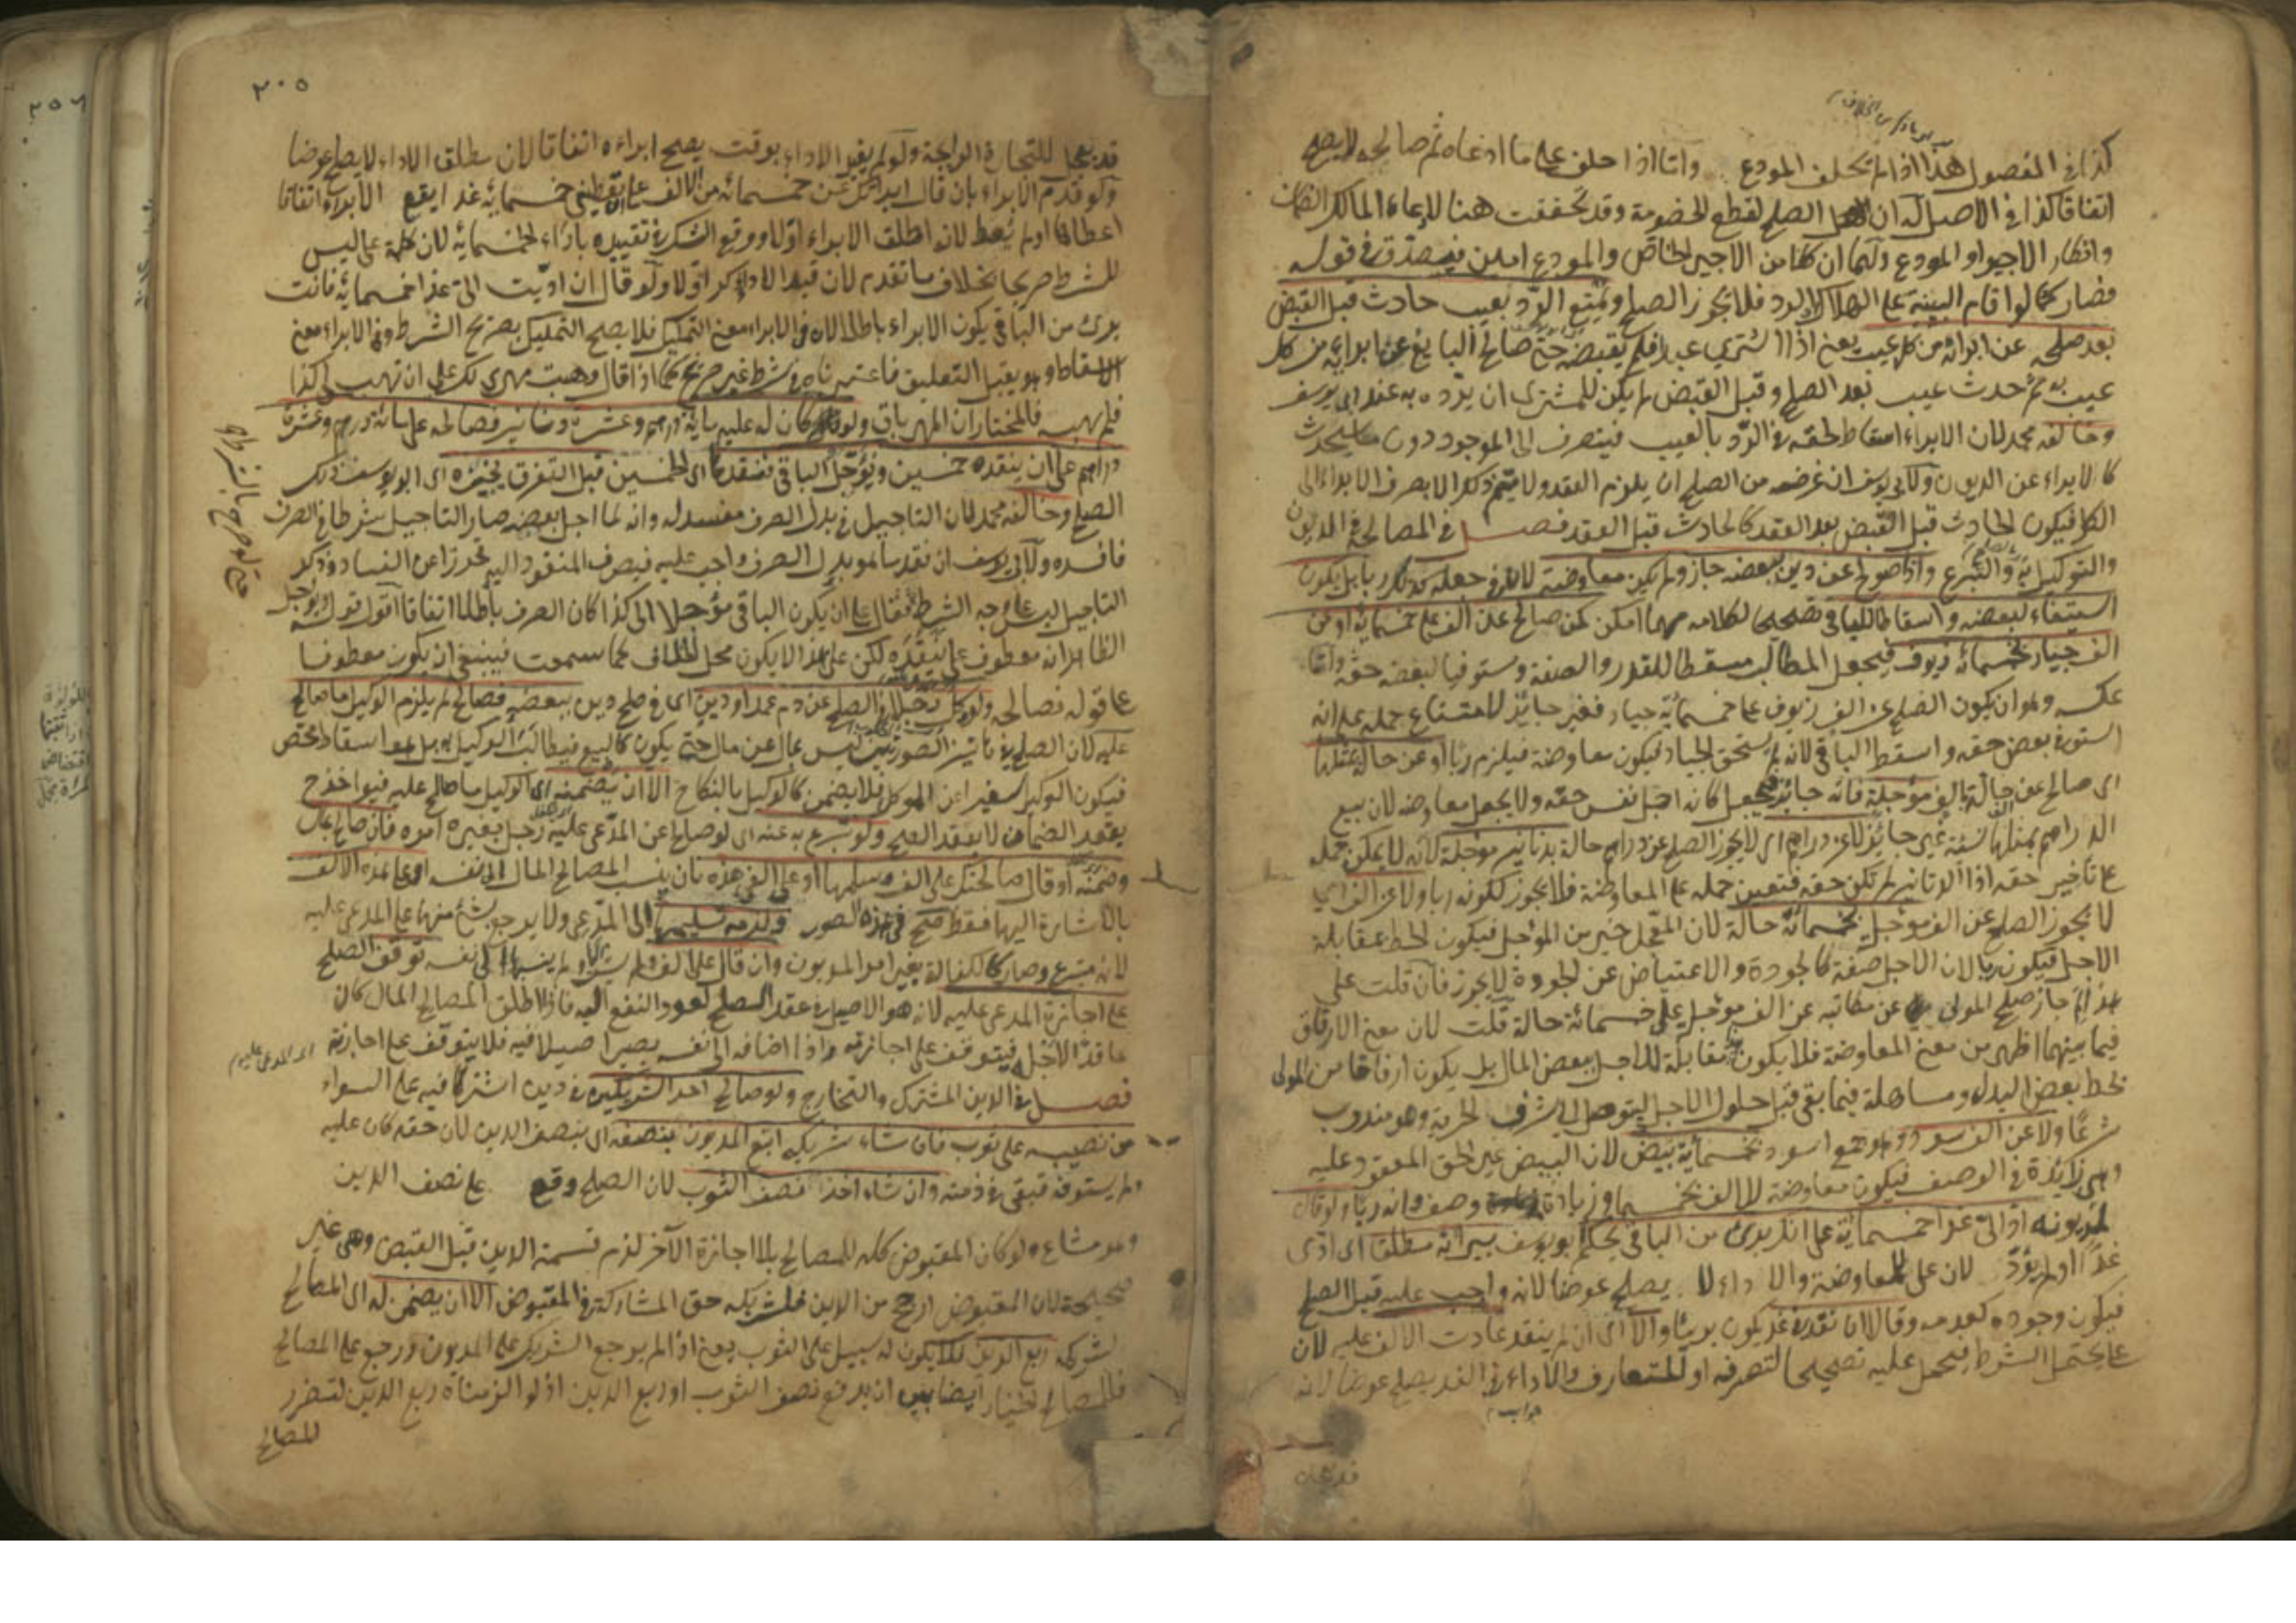 كذا في الفصول هذا اذا لم يحلف المودع واما اذا حلف على ما ادعاه ثم صالحه لا يصح
اتفاقا كذا في الاصل له ان الصلح لقطع الخصومة وقد تحققت هنا لادعاء المالك الضمان
وانكار الاجير او المودع ولهما ان كلا من الاجير الخاص والمودع امين فيصدق في قوله
فصار كما لو اقام البينة على الهلاك او الرد فلا يجوز الصلح ويمتنع الرد بعيب حادث قبل القبض
بعد صلحه عن ابرائه من كل عيب يعني اذا اشترى عبدا فلم يقبضه حتى صالح البايع عن ابرائه من كل
عيب به ثم حدث عيب بعد الصلح وقبل القبض لم يكن للمشتري ان يرده به عند ابي يوسف
وخالفه محمد لان الابراء اسقاط لحقه في الرد بالعيب فينصرف الى الموجود دون ما سيحدث
كالابراء عن الديون ولابي يوسف ان غرضه من الصلح ان يلزم العقد ولا يتم ذلك الا بصرف الابراء الى
الكل فيكون الحادث قبل القبض بعد العقد كالحادث قبل العقد فصل في المصالحة في الديون
والتوكيل به والتبرع واذا صولح عن دين ببعضه جاز ولم يكن معاوضة لان في جعله كذلك ربا بل يكون
استيفاء لبعضه واسقاطا للباقي تصحيحا لكلامه مهما امكن كمن صالح عن الف على خمسمائة او من
الف جياد بخمسمائة زيوف فيجعل المطالب مسقطا للقدر والصفة ومستوفيا لبعض حقه واما
عكسه وهو ان يكون الصلح عن الف زيوف على خمسمائة جياد فغير جائز لامتناع حمله على انه
استوفى بعض حقه واسقط الباقي لانه لم يستحق الجياد فيكون معاوضة فيلزم ربا او عن حالة بمثلها
اى صالح عن حالة بالف مؤجلة فانه جائز فيجعل كانه اجل نفس حقه ولا يجعل معاوضة لان بيع
الدراهم بمثلها نسئة غير جائز لا عن دراهم اى لا يجوز الصلح عن دراهم حالة بدنانير مؤجلة لانه لا يمكن حمله
على تأخير حقه اذا الدنانير لم تكن حقه فتعين حمله على المعاوضة فلا يجوز لكونه ربا ولا عن الف اى
لا يجوز الصلح عن الف مؤجل بخمسمائة حالة لان المعجل خير من المؤجل فيكون الحط بمقابلة
الاجل فيكون ربا لان الاجل صفة كالجودة والاعتياض عن الجودة لا يجوز فان قلت على
هذا لم جاز صلح المولى عن مكاتبه عن الف مؤجل على خمسمائة حالة قلت لان معنى الارفاق
فيما بينهما اظهر من معنى المعاوضة فلا يكون مقابلة للاجل ببعض المال بل يكون ارفاقا من المولى
بحط بعض البدل ومساهلة فيما بقي قبل حلول الاجل ليتوصل الى شرف الحرية وهو مندوب
شرعا ولا عن الف سود وهو جمع اسود بخمسمائة بيض لان البيض غير الحق المعقود عليه
وهي زائدة في الوصف فيكون معاوضة للالف بخمسمائة وزيادة وصف وانه ربا ولو قال
لمديونه اد الى غدا خمسمائة على انك برئ من الباقي يحكم ابو يوسف ببراءته مطلقا اى ادى
غدا او لم يؤد لان على للمعاوضة والاداء لا يصلح عوضا لانه واجب عليه قبل الصلح
فيكون وجوده كعدمه وقالا ان نقده غدا يكون بريئا والا اى ان لم ينقد عادت الالف عليه لان
على يحتمل الشرط فيحمل عليه تصحيحا لتصرفه او للمتعارف والاداء في الغد يصلح عوضا لانه
قد يحا
٢٠٥
قد يحا للتجارة الرابحة ولو لم يقيد الاداء بوقت يصح ابراءه اتفاقا لان مطلق الاداء لا يصلح عوضا
ولو قدم الابراء بان قال ابرأتك عن خمسمائة من الالف على ان تعطيني خمسمائة غدا يقع الابراء اتفاقا
اعطاه او لم يعط لانه اطلق الابراء اولا ووقع الشك في تقييده باداء الخمسمائة لان كلمة على ليس
للشرط صريحا بخلاف ما تقدم لان قيد الاداء ذكر اولا ولو قال ان اديت الى غدا خمسمائة فانت
برئ من الباقي يكون الابراء باطلا لان في الابراء معنى التمليك فلا يصح التمليك بصريح الشرط وفي الابراء معنى
الاسقاط وهو يقبل التعليق فاعتبرناه في شرط غير صريح كما اذا قال وهبت مهري لك على ان تهب لي كذا
فلم يهبه فالمختار ان المهر باق ولو كان له عليه مائة درهم وعشرة دنانير فصالحه على مائة درهم وعشرة
دراهم على ان ينقده خمسين ويؤجل الباقي فنقدها اى الخمسين قبل التفرق يجيزه اى ابو يوسف ذلك
الصلح وخالفه محمد لان التاجيل في بدل الصرف مفسد له وانه لما اجل بعضه صار التاجيل شرطا في الصرف
فافسده ولابي يوسف ان نقد ما هو بدل الصرف واجب عليه فيصرف المنقود اليه تحرزا عن الفساد وذكر
التاجيل ليس على وجه الشرط فقال على ان يكون الباقي مؤجلا الى كذا كان الصرف باطلا اتفاقا اقول قوله ويؤجل
الظاهر انه معطوف على ينقده لكن على هذا لا يكون محل الخلاف كما سمعت فينبغي ان يكون معطوفا
على قوله فصالحه ولو وكل بخلاف الصلح عن دم عمد او دين اى في صلح دين ببعضه فصالح لم يلزم الوكيل ما صالح
عليه لان الصلح في هاتين الصورتين ليس بمال عن مال حتى يكون كالبيع فيطالب الوكيل به بل هو اسقاط محض
فيكون الوكيل سفيرا عن الموكل فلا يضمن كالوكيل بالنكاح الا ان يضمنه اى الوكيل ما صالح عليه فيؤاخذ ح
بعقد الضمان لا بعقد الصلح ولو تبرع به عنه اى لو صالح عن المدعى عليه رجل بغير امره فان صالح بمال
وضمنه او قال صالحتك على الف وسلمها او على الفي هذه بان ينسب المصالح المال الى نفسه او على هذه الالف
بالاشارة اليها فقط صح في هذه الصور ولزمه تسليمها الى المدعي ولا يرجع بشئ منها على المدعى عليه
لانه متبرع وصار كالكفالة بغير امر المديون وان قال على الف ولم ينسبها الى نفسه توقف الصلح
على اجازة المدعى عليه لانه هو الاصيل في عقد الصلح لعود النفع اليه فاذا اطلق المصالح المال كان
عاقدا لاجله فيتوقف على اجازته واذا اضافه الى نفسه يصير اصيلا فيه فلا يتوقف على اجازة
اى المدعى عليه
فصل في الدين المشترك والتخارج ولو صالح احد الشريكين في دين اشتركا فيه على السواء
من نصيبه على ثوب فان شاء شريكه اتبع المديون بنصفه اى بنصف الدين لان حقه كان عليه
ولم يستوفه فبقي في ذمته وان شاء اخذ نصف الثوب لان الصلح وقع على نصف الدين
وهو مشاع ولو كان المقبوض كله للمصالح بلا اجازة الآخر لزم قسمة الدين قبل القبض وهي غير
صحيحة لان المقبوض ارجح من الدين فلشريكه حق المشاركة في المقبوض الا ان يضمن له اى المصالح
لشريكه ربع الدين فلا يكون له سبيل على الثوب يعني اذا لم يرجع الشريك على المديون ورجع على المصالح
فللمصالح الخيار ايضا بين ان يدفع نصف الثوب او ربع الدين اذ لو الزمناه ربع الدين لتضرر
المصالح
٢٥٦